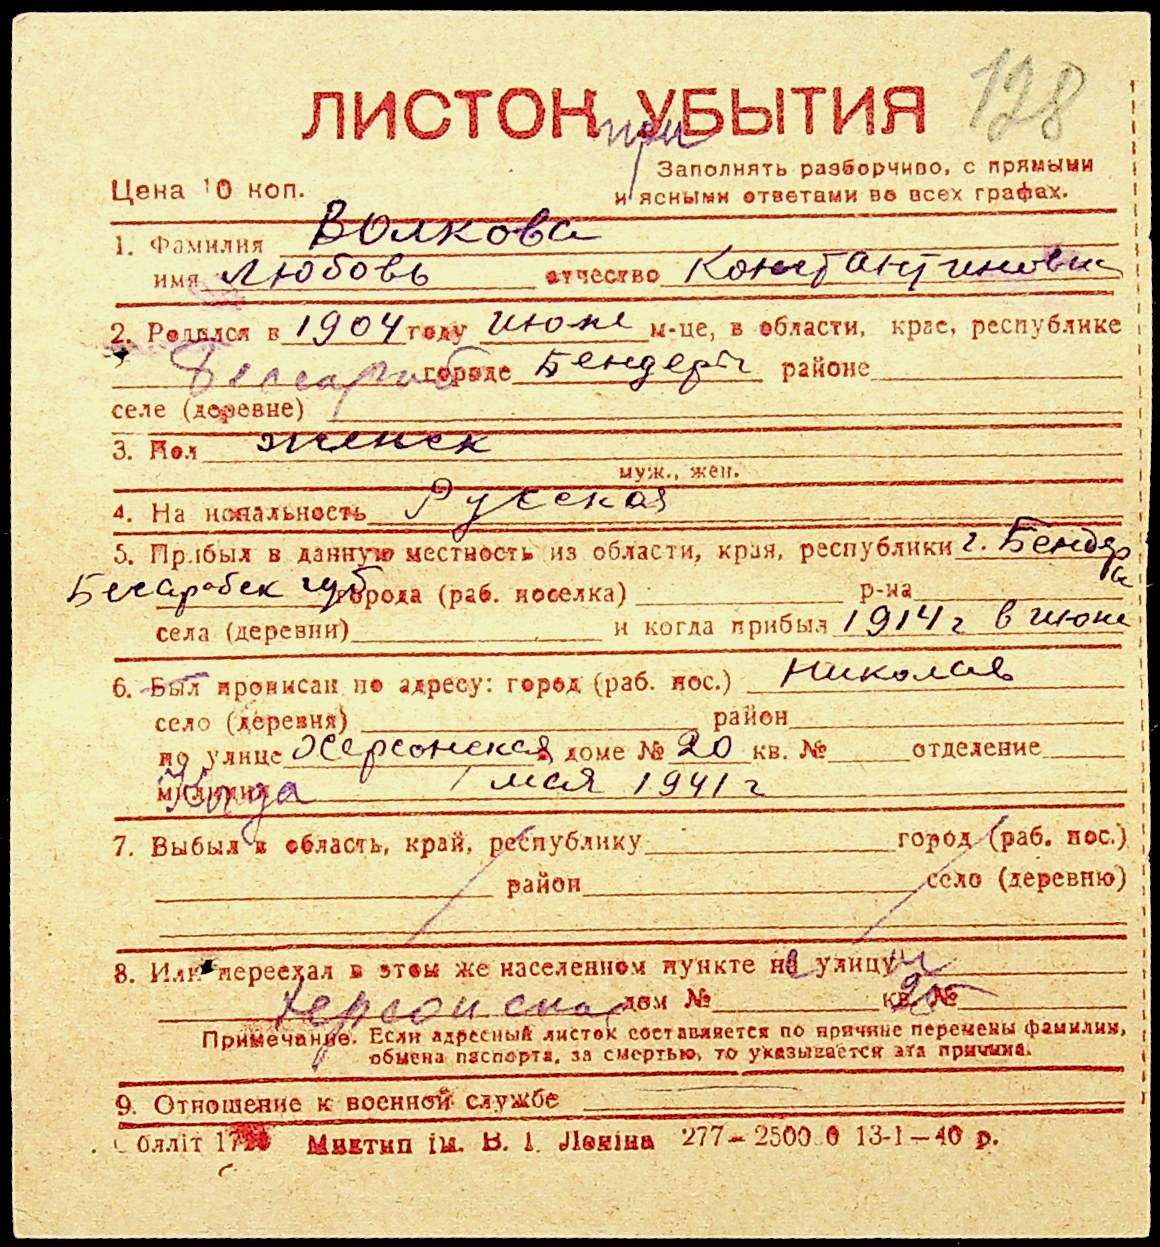 128
ЛИСТОК УБЫТИЯ
при
Цена 10 коп.
Заполнять разборчиво, с прямыми
и ясными ответами во всех графах.
1. Фамилия Волкова
имя Любовь отчество Константиновна
2. Родился в 1904 году июне м-це, в области, крае, республике
Бессараб городе Бендеры районе
селе (деревне)
3. Пол женск
муж., жен.
4. Национальность Русская
5. Прибыл в данную местность из области, края, республики г. Бендеры
Бесарабск губ города (раб. поселка) р-на
села (деревни) и когда прибыл 1914 г в июне
6. Был прописан по адресу: город (раб. пос.) Николаев
село (деревня) район
по улице Херсонская доме № 20 кв. № отделение
милиции Когда 1 мая 1941 г
7. Выбыл в область, край, республику город (раб. пос.)
район село (деревню)
8. Или переехал в этом же населенном пункте на улицу
Херсонская дом № кв. № 20
Примечание. Если адресный листок составляется по причине перемены фамилии,
обмена паспорта, за смертью, то указывается эта причина.
9. Отношение к военной службе
Миктип ім. В. І. Леніна 277—2500 0 13-I—40 р.